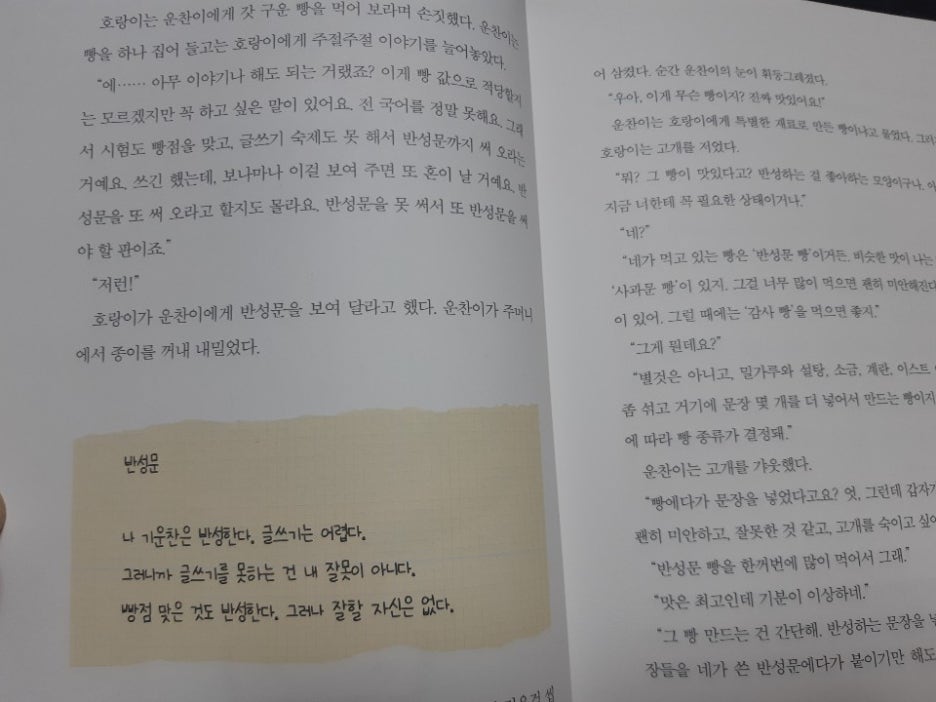 호랑이는 운찬이에게 갓 구운 빵을 먹어 보라며 손짓했다. 운찬이는
빵을 하나 집어 들고는 호랑이에게 주절주절 이야기를 늘어놓았다.
“에…… 아무 이야기나 해도 되는 거랬죠? 이게 빵 값으로 적당할지
는 모르겠지만 꼭 하고 싶은 말이 있어요. 전 국어를 정말 못해요. 그래
서 시험도 빵점을 맞고, 글쓰기 숙제도 못 해서 반성문까지 써 오라는
거예요. 쓰긴 했는데, 보나마나 이걸 보여 주면 또 혼이 날 거예요. 반
성문을 또 써 오라고 할지도 몰라요. 반성문을 못 써서 또 반성문을 써
야 할 판이죠.”
“저런!”
호랑이가 운찬이에게 반성문을 보여 달라고 했다. 운찬이가 주머니
에서 종이를 꺼내 내밀었다.
반성문
나 기운찬은 반성한다. 글쓰기는 어렵다.
그러니까 글쓰기를 못하는 건 내 잘못이 아니다.
빵점 맞은 것도 반성한다. 그러나 잘할 자신은 없다.
어 삼켰다. 순간 운찬이의 눈이 휘둥그레졌다.
“우아, 이게 무슨 빵이지? 진짜 맛있어요!”
운찬이는 호랑이에게 특별한 재료로 만든 빵이냐고 물었다. 그러
호랑이는 고개를 저었다.
“뭐? 그 빵이 맛있다고? 반성하는 걸 좋아하는 모양이구나. 아
지금 너한테 꼭 필요한 상태이거나.”
“네?”
“네가 먹고 있는 빵은 ‘반성문 빵’이거든. 비슷한 맛이 나는
‘사과문 빵’이 있지. 그걸 너무 많이 먹으면 괜히 미안해진다
이 있어. 그럴 때에는 ‘감사 빵’을 먹으면 좋지.”
“그게 뭔데요?”
“별것은 아니고, 밀가루와 설탕, 소금, 계란, 이스트
좀 섞고 거기에 문장 몇 개를 더 넣어서 만드는 빵이지
에 따라 빵 종류가 결정돼.”
운찬이는 고개를 갸웃했다.
“빵에다가 문장을 넣었다고요? 엇, 그런데 갑자기
괜히 미안하고, 잘못한 것 같고, 고개를 숙이고 싶어
“반성문 빵을 한꺼번에 많이 먹어서 그래.”
“맛은 최고인데 기분이 이상하네.”
“그 빵 만드는 건 간단해. 반성하는 문장을
장들을 네가 쓴 반성문에다가 붙이기만 해도